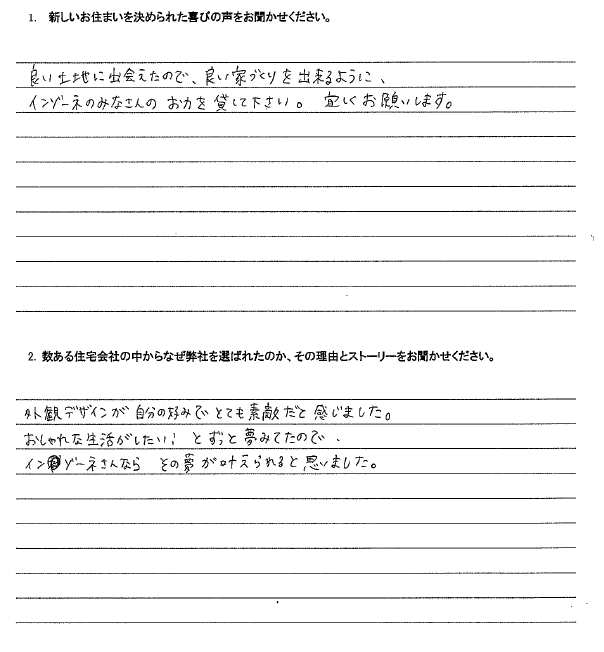 1. 新しいお住まいを決められた喜びの声をお聞かせください。
良い土地に出会えたので、良い家づくりを出来るように、
インゾーネのみなさんの お力を 貸して下さい。 宜しくお願いします。
2. 数ある住宅会社の中からなぜ弊社を選ばれたのか、その理由とストーリーをお聞かせください。
外観デザインが 自分の好みで とても素敵だと 感じました。
おしゃれな生活がしたい! とずっと夢みてたので、
インゾーネさんなら その夢が叶えられると思いました。